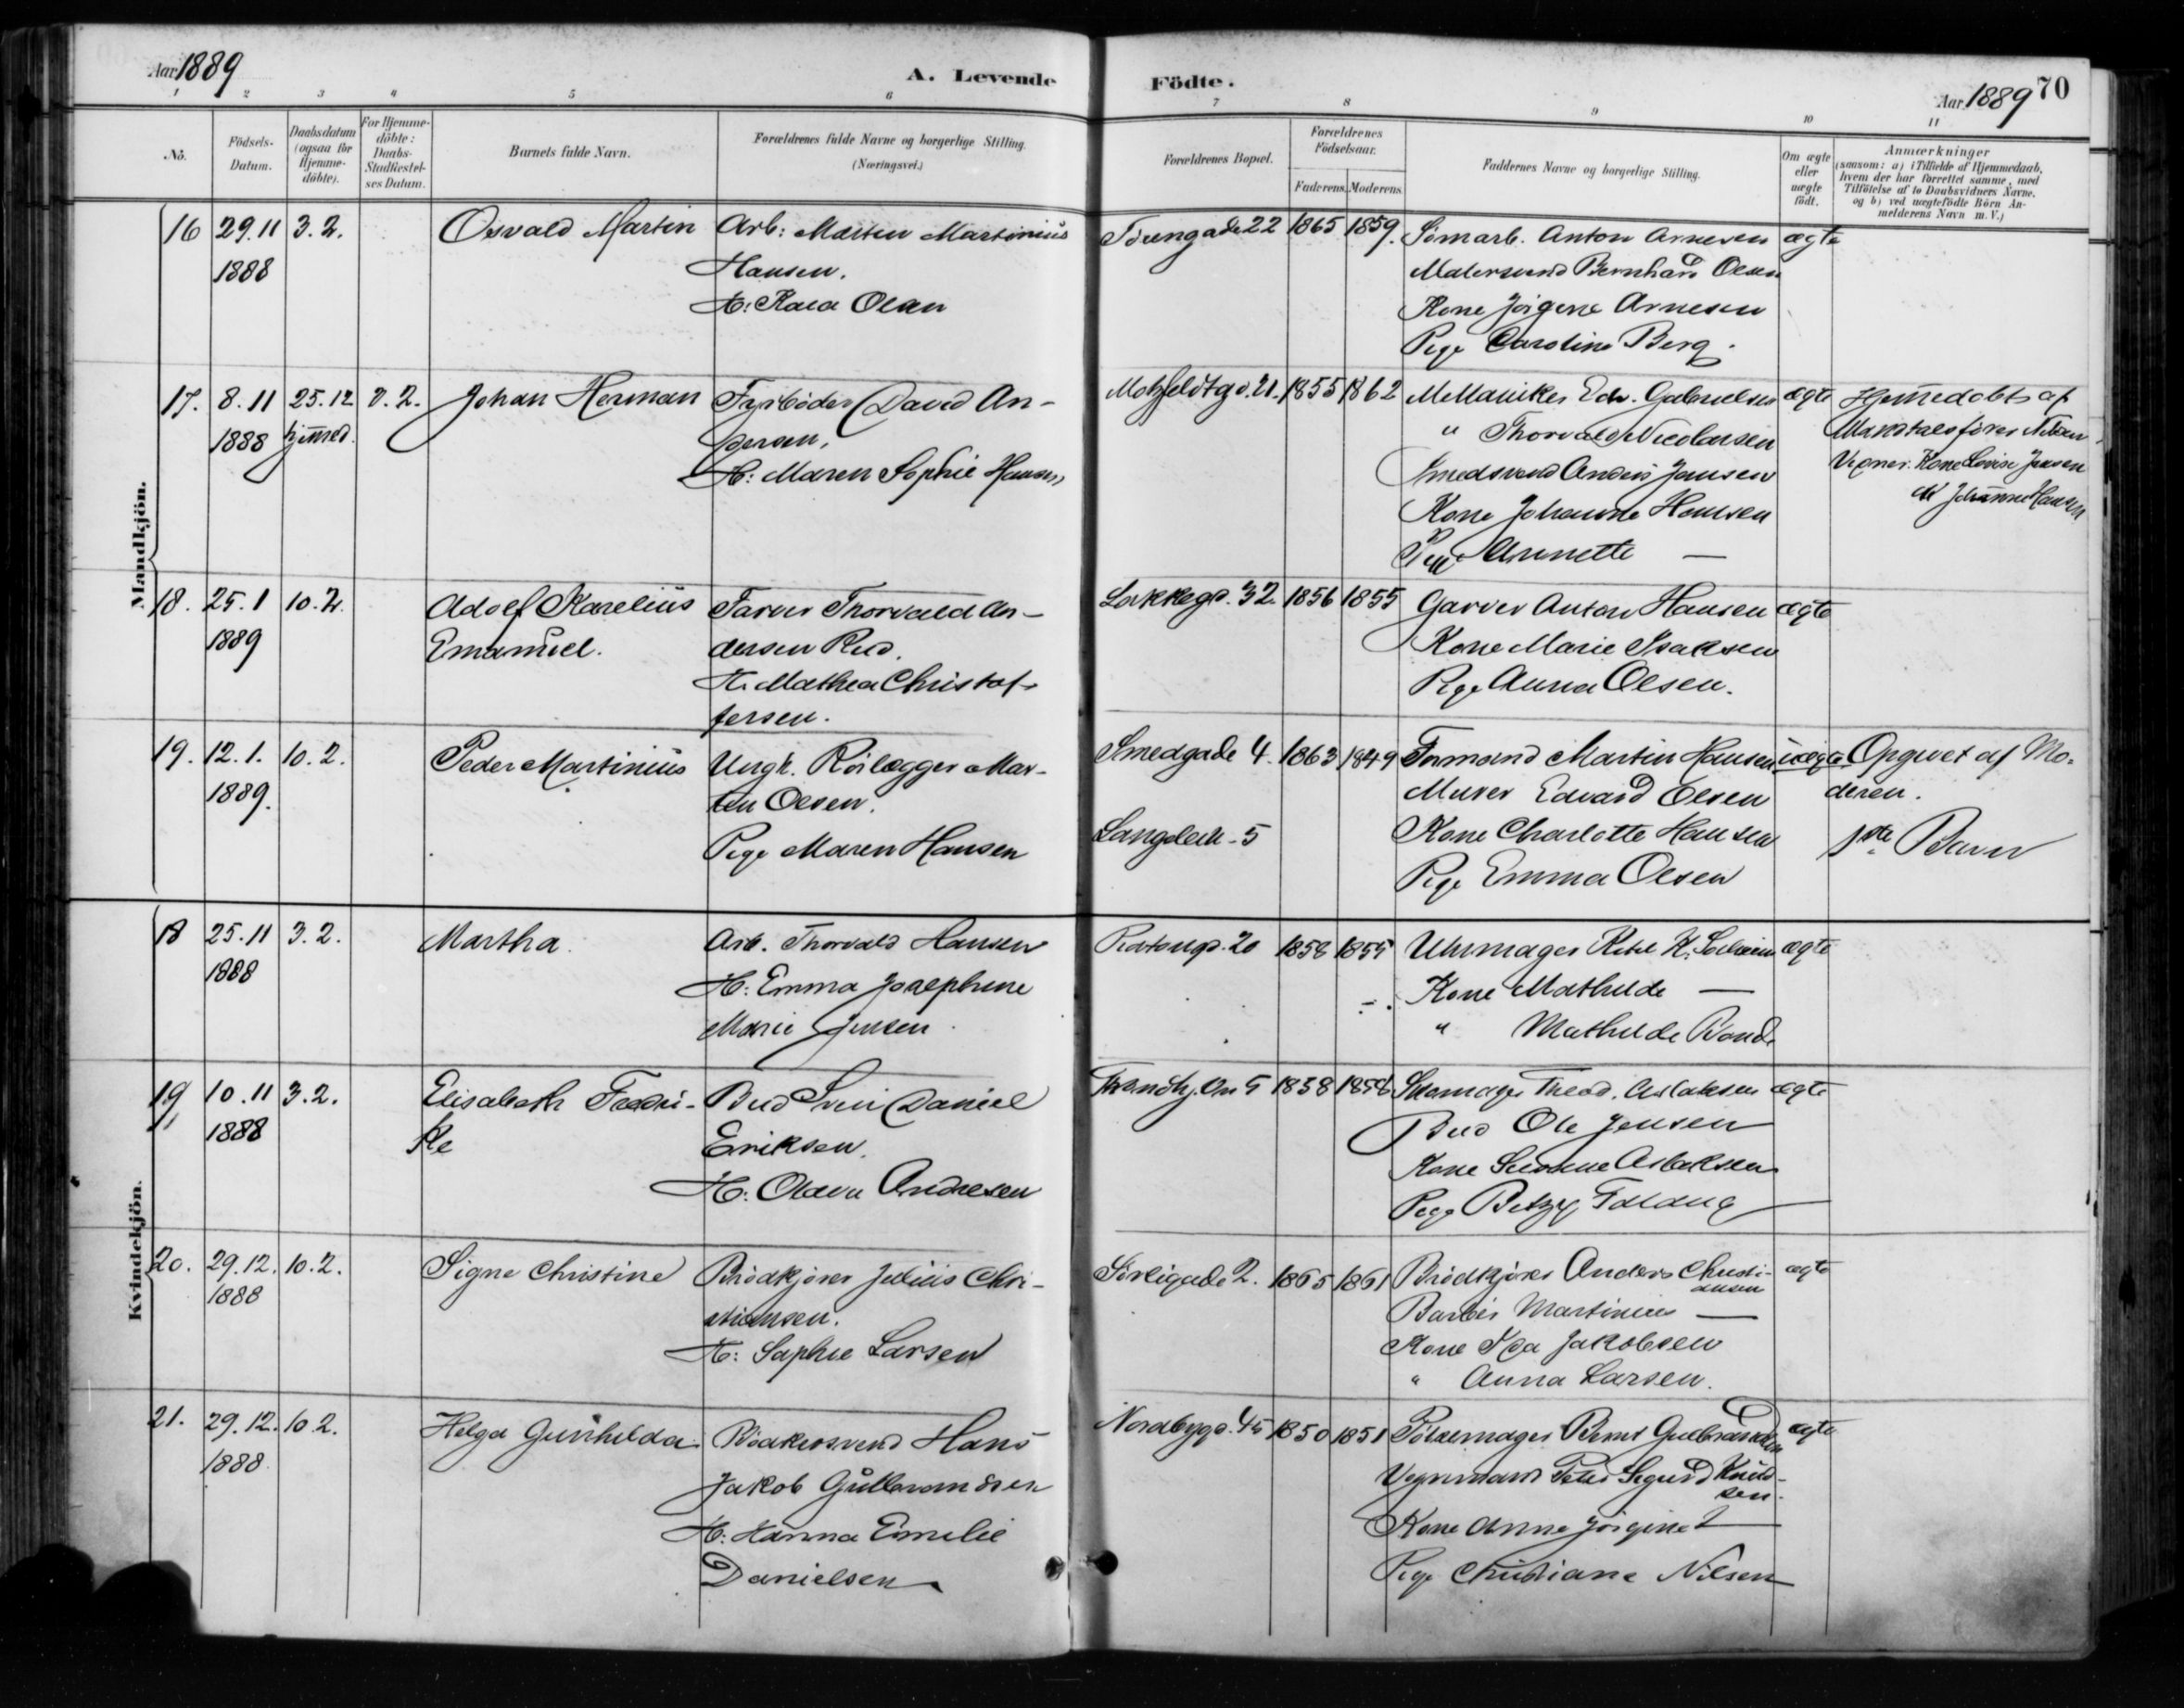 Aar 1889
A. Levende Födte.
Aar 1889 70
1 2 3 4 5 6 7 8 9 10 11
No.
Födsels-Datum.
Daabsdatum (ogsaa for Hjemme-döbte).
For Hjemme-döbte: Daabs-Stadfæstel-ses Datum.
Barnets fulde Navn.
Forældrenes fulde Navne og borgerlige Stilling. (Næringsvei.)
Forældrenes Bopæl.
Forældrenes Födselsaar.
Faderens. Moderens.
Faddernes Navne og borgerlige Stilling.
Om ægte eller uægte födt.
Anmærkninger
(saasom: a) i Tilfælde af Hjemmedaab, hvem der har forrettet samme, med Tilföielse af to Daabsvidners Navne, og b) ved uægtefödte Börn Anmelderens Navn m. V.)
Mandkjön.
16 29.11 3.2. Osvald Martin Arb: Martin Martinius Töiengade 22 1865 1859. Jernarb. Anton Arnesen ægte
1888 Hansen. Malersvend Bernhard Olsen
H: Kaia Olsen Kone Jörgine Arnesen
Pige Caroline Berg.
17. 8.11 25.12 3.2. Johan Herman Fyrböder David An- Motzfeldtgd. 21. 1855 1862 Edv. Gabrielsen ægte Hjemedöbt af
1888 hjemed. dersen. " Thorvald Nicolaisen Nilsen
H: Maren Sophie Hansen Smedsvend Anders Jansen Kone Lovise Jensen
Kone Johanne Hansen Johanne Hansen
Pige Annette —
18. 25.1 10.2. Adolf Karelius Farver Thorvald An- Lakkegd. 32. 1856 1855 Garver Anton Hansen ægte
1889 Emanuel. dersen Rud. Kone Marie Isaksen
H. Mathea Christof- Pige Anna Olsen.
fersen.
19. 12.1. 10.2. Peder Martinius Ungk. Rörlægger Mar- Smedgade 4. 1863 1849 Formand Martin Hansen uægte Opgivet af Mo-
1889. tin Olsen. Murer Edvard Olsen deren.
Pige Maren Hansen Langeleik. 5 Kone Charlotte Hansen 1ste Barn
Pige Emma Olsen
Kvindekjön.
18 25.11 3.2. Martha. Arb. Thorvald Hansen 20 1858 1855 Uhrmager Ketil K. Solheim ægte
1888 H: Emma Josephine Kone Mathilde —
Marie Jensen. " Mathilde Bonde
19 10.11 3.2. Elisabeth Fredri- Bud Svein Daniel 5 1858 1858 Skomager Theod. Aslaksen ægte
1888 ke Eriksen. Bud Ole Jensen
H: Olava Andresen Kone Aslaksen
Pige Betzy
20. 29.12. 10.2. Signe Christine Brödkjörer Julius Chri- Sörligade 2. 1865 1861 Brödkjörer Anders Christi- ægte
1888 stiansen. ansen
H: Sophie Larsen Barber Martinius —
Kone Ida Jakobsen
" Anna Larsen.
21. 29.12. 10.2. Helga Gunhilda Bödkersvend Hans Nordbygd. 45 1850 1851 Pölsemager Bernt Gulbrandsen ægte
1888 Jakob Gulbrandsen Vognmand Peter Sigurd Knud-
H: Hanna Emilie sen.
Danielsen Kone Anne Jörgine —
Pige Christiane Nilsen